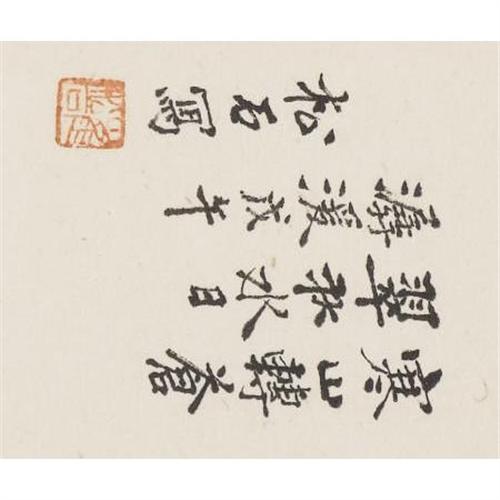 寒山轉蒼
翠秋水日
潺湲戊午
松石寫